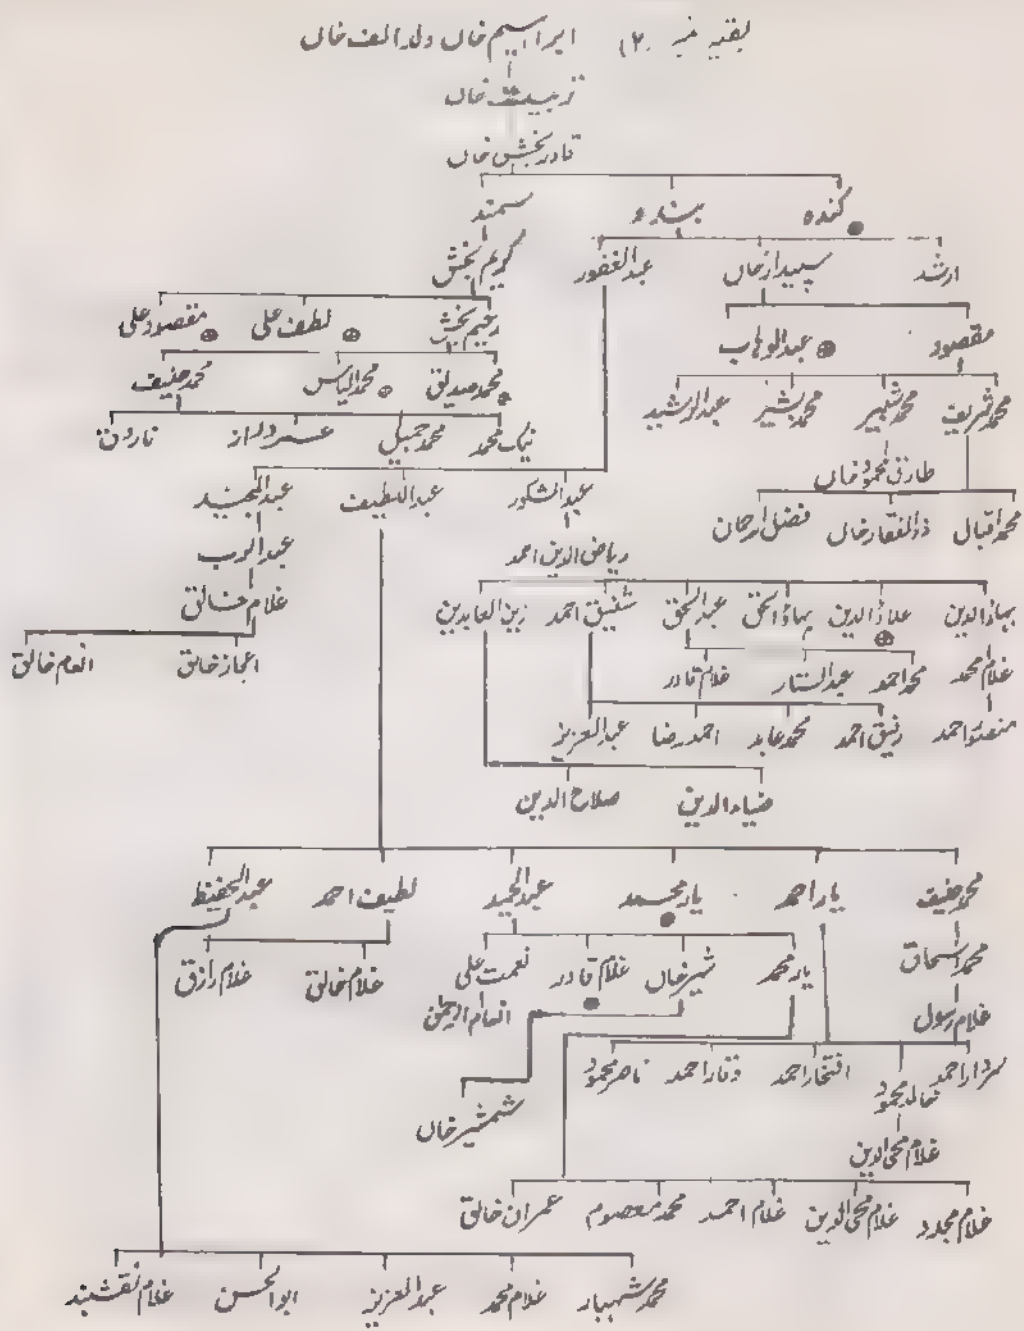 بقیہ نمبر (۲) ابراہیم خاں ولد الف خاں
تربیت خاں
قادر بخش خاں
کندہ بندو سمند
ارشد سپیدار خاں عبدالغفور کریم بخش
مقصود عبدالوہاب رحیم بخش لطف علی مقصود علی
محمد شریف محمد شبیر محمد بشیر عبدالرشید محمد صدیق محمد الیاس محمد حنیف
نیک محمد محمد جمیل عمر دراز ہارون
طارق محمود خاں
محمد اقبال ذوالفقار خاں فضل الرحمان عبدالشکور عبداللطیف عبدالمجید
ریاض الدین احمد عبدالرب
بہاؤالدین علاؤالدین بہاؤالحق عبدالحق شفیق احمد زین العابدین غلام خالق
غلام محمد محمد احمد عبدالستار غلام قادر اعجاز خالق انعام خالق
احمد رفیق احمد محمد عابد احمد رضا عبدالعزیز
ضیاءالدین صلاح الدین
محمد حنیف یار احمد یار محمد عبدالحمید لطیف احمد عبدالحفیظ
محمد اسحاق یار محمد شیر خاں غلام قادر نعمت علی غلام خالق غلام رازق
غلام رسول انعام الرحمٰن
سردار احمد خالد محمود افتخار احمد وقار احمد ناصر محمود
شمشیر خاں
غلام محی الدین
غلام مجدد غلام محی الدین غلام احمد محمد معصوم عمران خالق
محمد شہباز غلام محمد عبدالعزیز ابوالحسن غلام نقشبند